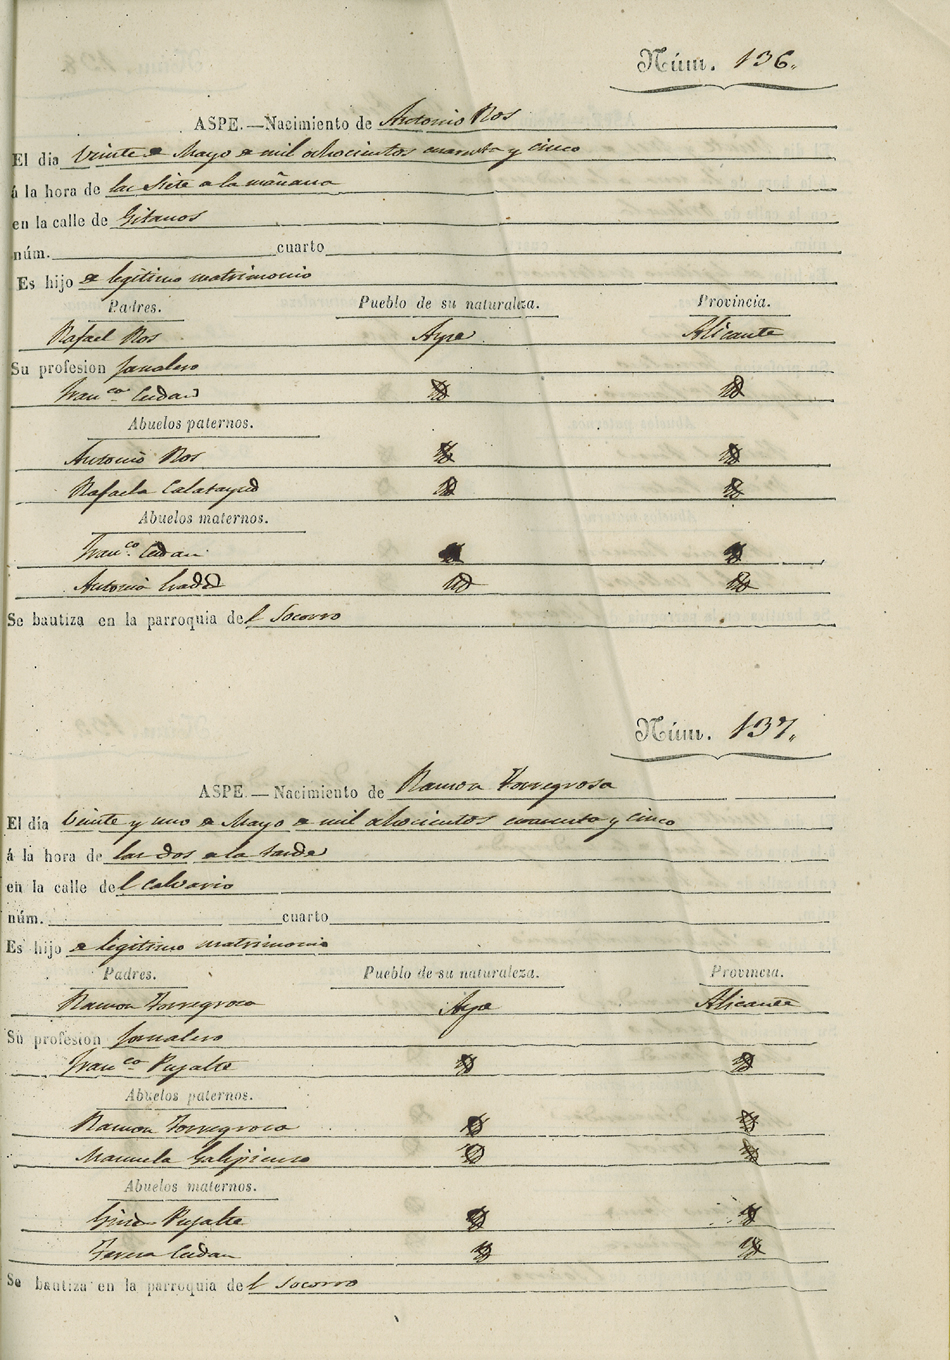 Núm. 136.
ASPE.—Nacimiento de Antonio Ros
El dia Veinte de Mayo de mil ochocientos cuarenta y cinco
á la hora de las Siete de la mañana
en la calle de Gitanos
núm. cuarto
Es hijo de legitimo matrimonio
Padres. Pueblo de su naturaleza. Provincia.
Rafael Ros Aspe Alicante
Su profesion Jornalero
Franca. Cerdan
Abuelos paternos.
Antonio Ros
Rafaela Calatayud
Abuelos maternos.
Franco. Cerdan
Antonia
Se bautiza en la parroquia del Socorro
Núm. 137.
ASPE.—Nacimiento de Ramon Torregrosa
El dia Veinte y uno de Mayo de mil ochocientos cuarenta y cinco
á la hora de las dos de la tarde
en la calle del Calvario
núm. cuarto
Es hijo de legitimo matrimonio
Padres. Pueblo de su naturaleza. Provincia.
Ramon Torregrosa Aspe Alicante
Su profesion Jornalero
Franca. Pujalte
Abuelos paternos.
Ramon Torregrosa
Manuela Galipienso
Abuelos maternos.
Pujalte
Teresa Cerdan
Se bautiza en la parroquia del Socorro